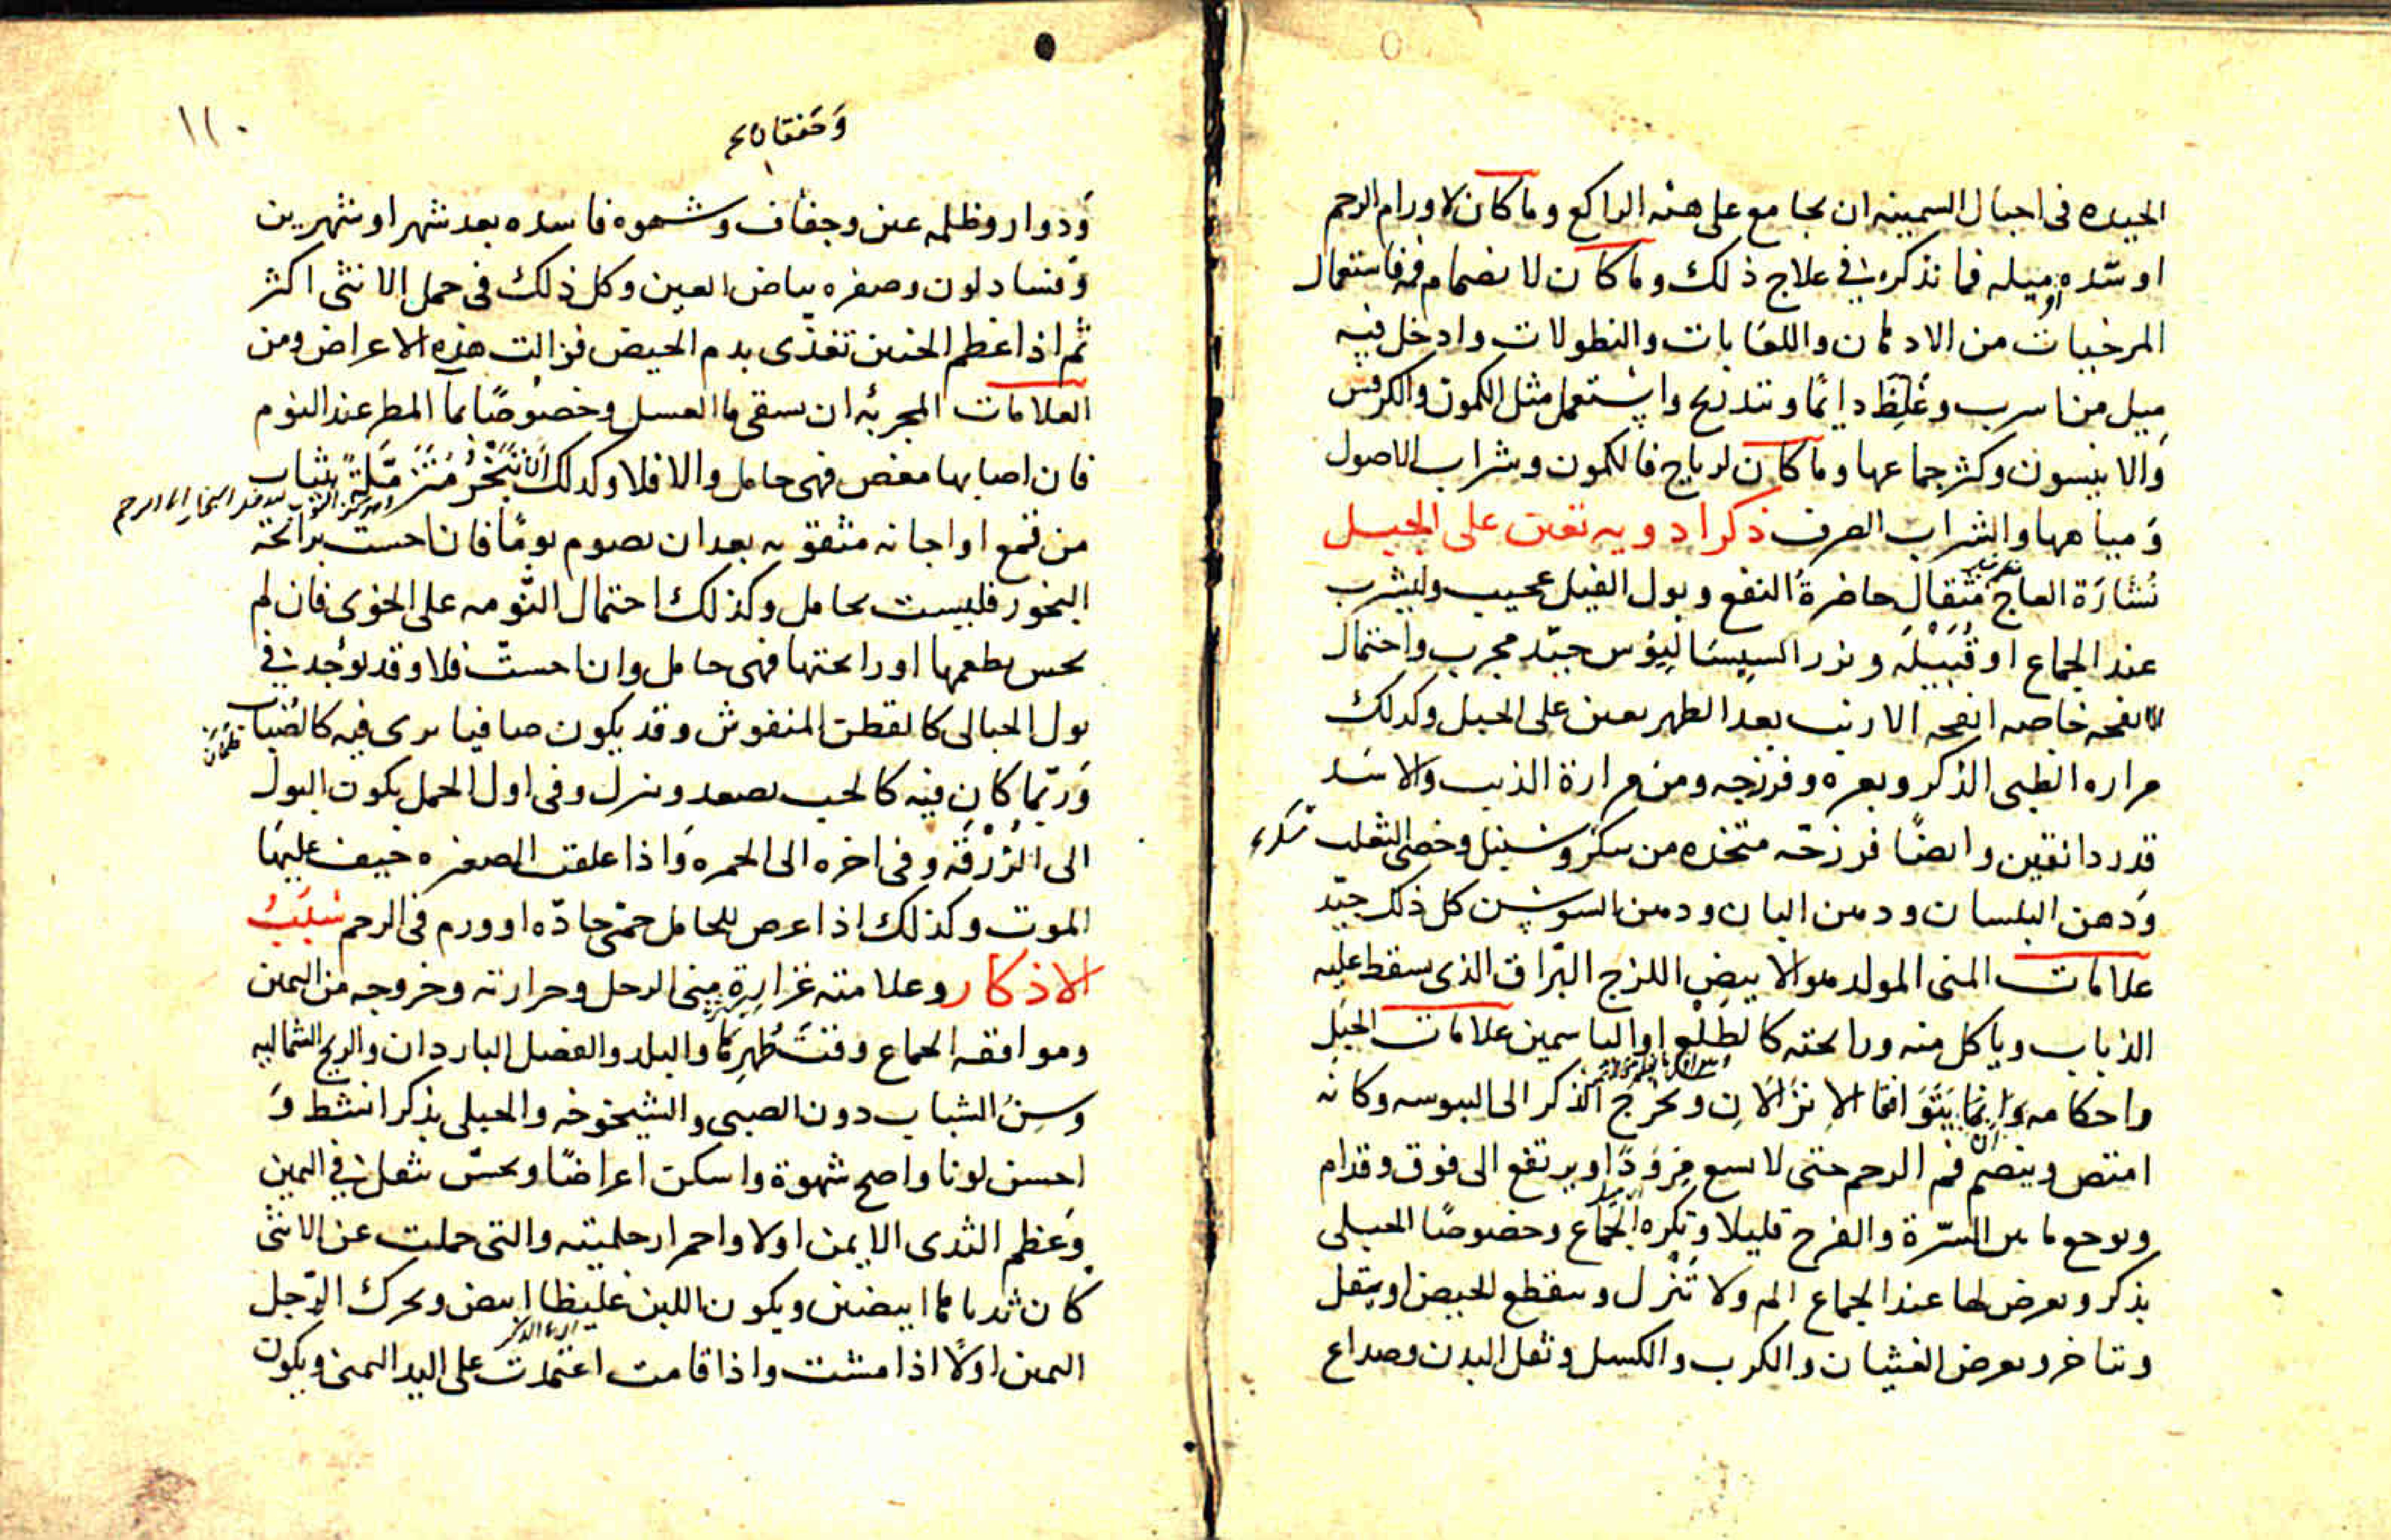 الجيده فى احبال السمينه ان يجامع على هيئه الراكع وما كان لاورام الرحم
او شده ميله فما نذكره فى علاج ذلك وما كان لانضمام فمه فاستعمال
المرخيات من الادهان واللعابات والنطولات وادخل فيه
ميل من اسرب وغلظ دايما وتتدريج واستعمل مثل الكمون والكرفس
والانيسون وكثر جماعها وما كان لرياح فالكمون وشراب الاصول
ومياهها والشراب الصرف ذكر ادويه تعين على الحبل
نشارة العاج مثقال حاضرة النفع وبول الفيل عجيب وليشرب
عند الجماع او قبيله وبزر السيساليوس جيد مجرب واحتمال
الانفحه خاصه انفحه الارنب بعد الطهر يعين على الحبل وكذلك
مراره الظبى الذكر وبعره وفرزجه ومن مرارة الذيب والاسد
قدر دانقين وايضا فرزجه متخذه من سك وسنبل وخصى الثعلب
ودهن البلسان ودهن البان ودهن السوسن كل ذلك جيد
علامات المنى المولد هو الابيض اللزج البراق الذى يسقط عليه
الذباب وياكل منه ورايحته كالطلع او الياسمين علامات الحبل
واحكامه وانما يتوافقا الانزالان ويخرج الذكر الى اليبوسه وكانه
امتص وينضم فم الرحم حتى لا يسع مرودا ويرتفع الى فوق وقدام
ويوجع ما بين السرة والفرج قليلا وتكره الجماع وخصوصا الحبلى
بذكر ويعرض لها عند الجماع الم ولا تنزل وينقطع الحيض او يقل
ويتاخر ويعرض الغثيان والكرب والكسل وثقل البدن وصداع
١١٠
وخفقان
ودوار وظلمه عين وجفاف وشهوه فاسده بعد شهر او شهرين
وفساد لون وصفره بياض العين وكل ذلك فى حمل الانثى اكثر
ثم اذا عظم الجنين تغذى بدم الحيض فزالت هذه الاعراض ومن
العلامات المجربه ان يسقى ما العسل وخصوصا بما المطر عند النوم
فان اصابها مغص فهى حامل والا فلا وكذلك ان تتبخر متزملة بثياب
من قمع او اجانه مثقوبه بعد ان يصوم يوما فان احست برائحة
البخور فليست بحامل وكذلك احتمال الثومه على الخوى فان لم
يحس بطعمها او رائحتها فهى حامل وان احست فلا وقد يوجد فى
بول الحبالى كالقطن المنفوش وقد يكون صافيا يرى فيه كالضباب
وربما كان فيه كالحب يصعد وينزل وفى اول الحمل يكون البول
الى الزرقه وفى اخره الى الحمره واذا علقت الصغيره خيف عليها
الموت وكذلك اذا عرض للحامل حمى حاده او ورم فى الرحم سبب
الاذكار وعلامته غزارة منى الرجل وحرارته وخروجه من اليمين
وموافقه الجماع وقت طهرها والبلد والفصل الباردان والريح الشماليه
وسن الشباب دون الصبى والشيخوخه والحبلى بذكر انشط و
احسن لونا واصح شهوة واسكن اعراضا ويحس بثقل فى اليمين
وعظم الثدى الايمن اولا واحمرار حلمته والتى حملت عن الانثى
كان ثدياها ابيضين ويكون اللبن غليظا ابيض ويحرك الرجل
اليمين اولا اذا مشت واذا قامت اعتمدت على اليد اليمنى ويكون